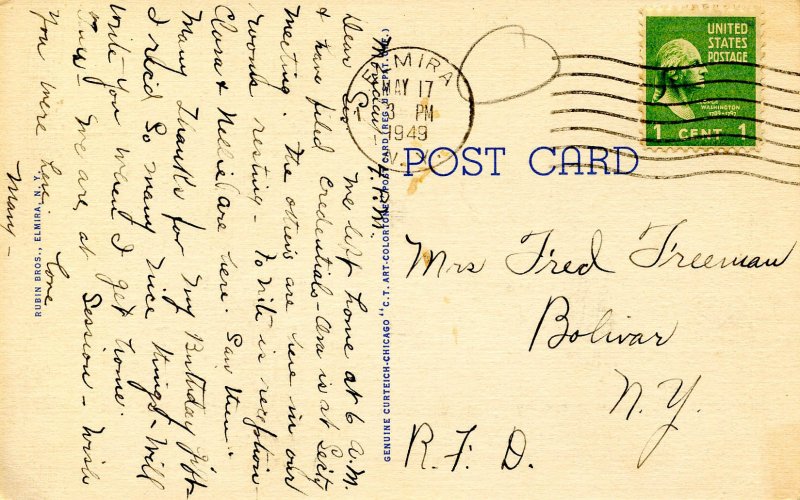 Monday - 7 P.M.
Dear Sis, We left home at 6 A.M.
& have filed credentials - Ora is at Secty
meeting. The others are here in our
rooms resting - To nite is reception -
Clara & Nellie are here. Saw them.
Many Thanks for my Birthday gift -
I rec'd so many nice things - Will
write you when I get home.
Tues - We are at Session - Wish
you were here Love
Mary -
RUBIN BROS., ELMIRA, N. Y.
GENUINE CURTEICH-CHICAGO "C.T. ART-COLORTONE" POST CARD (REG. U.S. PAT. OFF.)
ELMIRA
MAY 17
3 PM
1949
N.Y.
UNITED
STATES
POSTAGE
WASHINGTON
1 CENT 1
POST CARD
Mrs Fred Freeman
Bolivar
N.Y.
R.F.D.